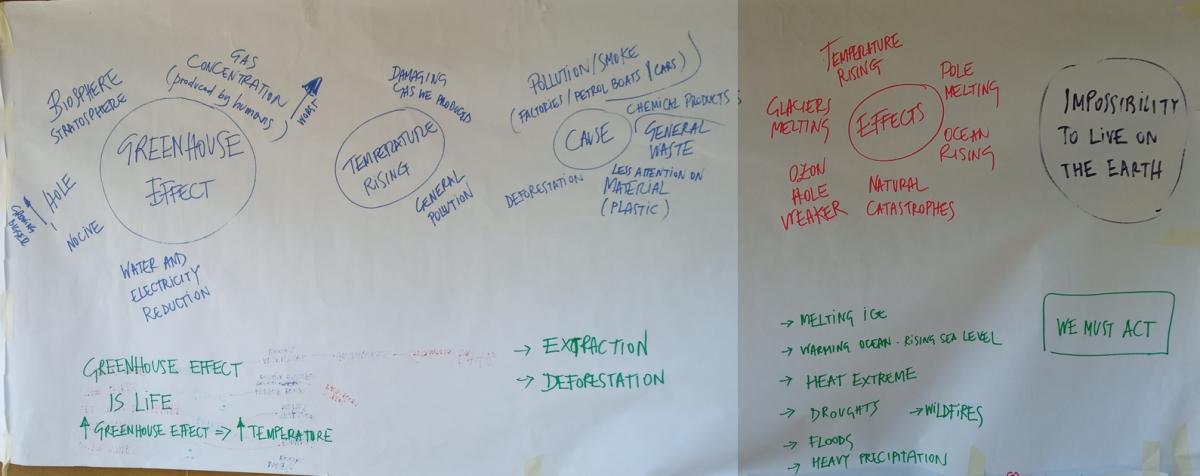 BIOSPHERE
STRATOSPHERE
GAS
CONCENTRATION
(produced by humans)
WORST
GREENHOUSE
EFFECT
HOLE
GROWING
BIGGER
NOCIVE
WATER AND
ELECTRICITY
REDUCTION
DAMAGING
GAS WE PRODUCED
TEMPERATURE
RISING
GENERAL
POLLUTION
POLLUTION/SMOKE
(FACTORIES/PETROL BOATS/CARS)
CHEMICAL PRODUCTS
CAUSE
GENERAL
WASTE
LESS ATTENTION ON
MATERIAL
(PLASTIC)
DEFORESTATION
TEMPERATURE
RISING
POLE
MELTING
GLACIERS
MELTING
EFFECTS
OCEAN
RISING
OZON
HOLE
WEAKER
NATURAL
CATASTROPHES
IMPOSSIBILITY
TO LIVE ON
THE EARTH
GREENHOUSE EFFECT
IS LIFE
↑ GREENHOUSE EFFECT => ↑ TEMPERATURE
→ EXTRACTION
→ DEFORESTATION
→ MELTING ICE
→ WARMING OCEAN · RISING SEA LEVEL
→ HEAT EXTREME
→ DROUGHTS → WILDFIRES
→ FLOODS
→ HEAVY PRECIPITATION
WE MUST ACT